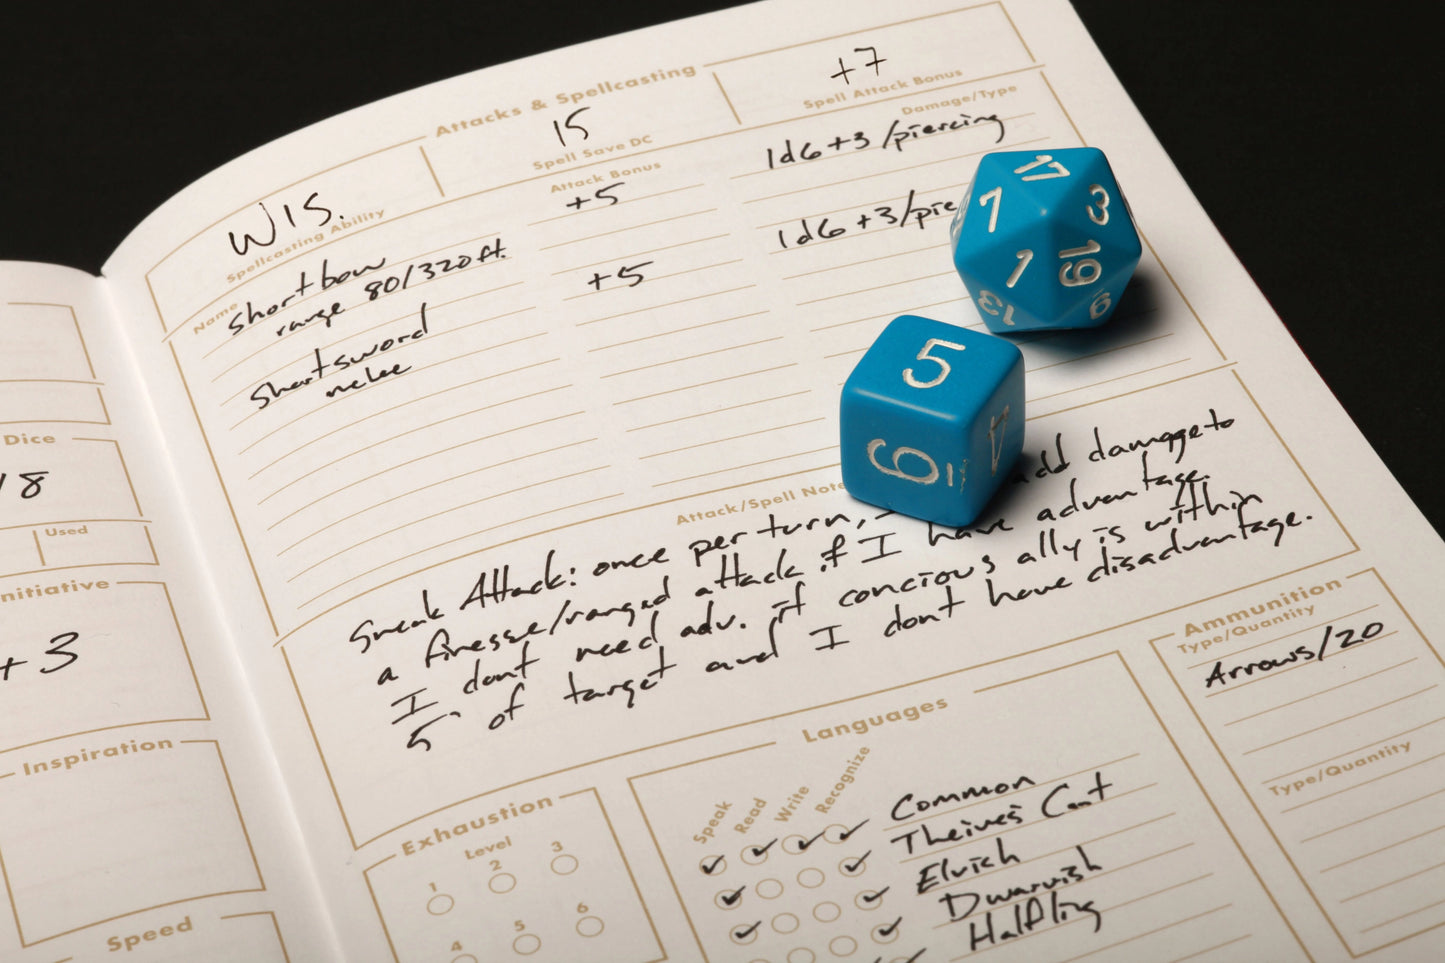 Attacks & Spellcasting
WIS.
Spellcasting Ability
15
Spell Save DC
+7
Spell Attack Bonus
Name
Attack Bonus
Damage/Type
Shortbow
range 80/320ft.
+5
1d6+3/piercing
Shortsword
melee
+5
1d6+3/pie
17
7
3
1
19
13
9
5
6
4
Attack/Spell Note
Sneak Attack: once per turn, I add damage to
a finesse/ranged attack if I have advantage.
I dont need adv. if concious ally is within
5' of target and I dont have disadvantage.
Dice
18
Used
nitiative
+3
Inspiration
Speed
Exhaustion
Level
1
2
3
4
5
6
Languages
Speak
Read
Write
Recognize
Common
Theives Cant
Elvish
Dwarvish
Halfling
Ammunition
Type/Quantity
Arrows/20
Type/Quantity